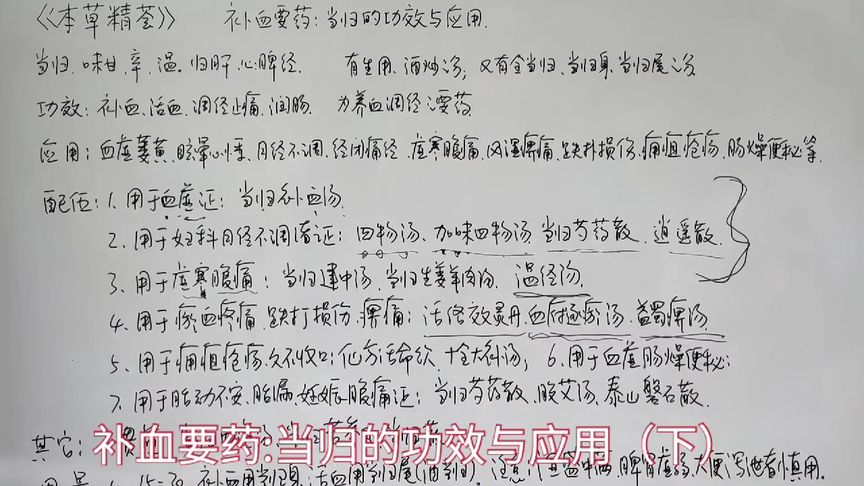 《本草精荟》 补血要药:当归的功效与应用.
当归.味甘.辛.温。归肝.心.脾经. 有生用.酒炒. 又有全当归.当归身.当归尾
功效:补血.活血.调经止痛.润肠. 为养血调经之要药
应用:血虚萎黄.眩晕心悸.月经不调.经闭痛经.虚寒腹痛.风湿痹痛.跌扑损伤.痈疽疮疡.肠燥便秘等.
配伍:1.用于血虚证:当归补血汤.
2.用于妇科月经不调诸证:四物汤、加味四物汤.当归芍药散、逍遥散.
3、用于虚寒腹痛:当归建中汤、当归生姜羊肉汤、温经汤.
4、用于瘀血疼痛.跌打损伤.痹痛:活络效灵丹.血府逐瘀汤.蠲痹汤.
5、用于痈疽疮疡.久不收口:仙方活命饮.十全大补汤; 6.用于血虚肠燥便秘;
7.用于胎动不安、胎漏.妊娠腹痛证:当归芍药散.胶艾汤.泰山磐石散.
其它:
补血要药:当归的功效与应用(下)
15-30 补血用当归身.活血用当归尾 注意:湿盛中满.脾胃虚弱.大便泻泄者慎用.